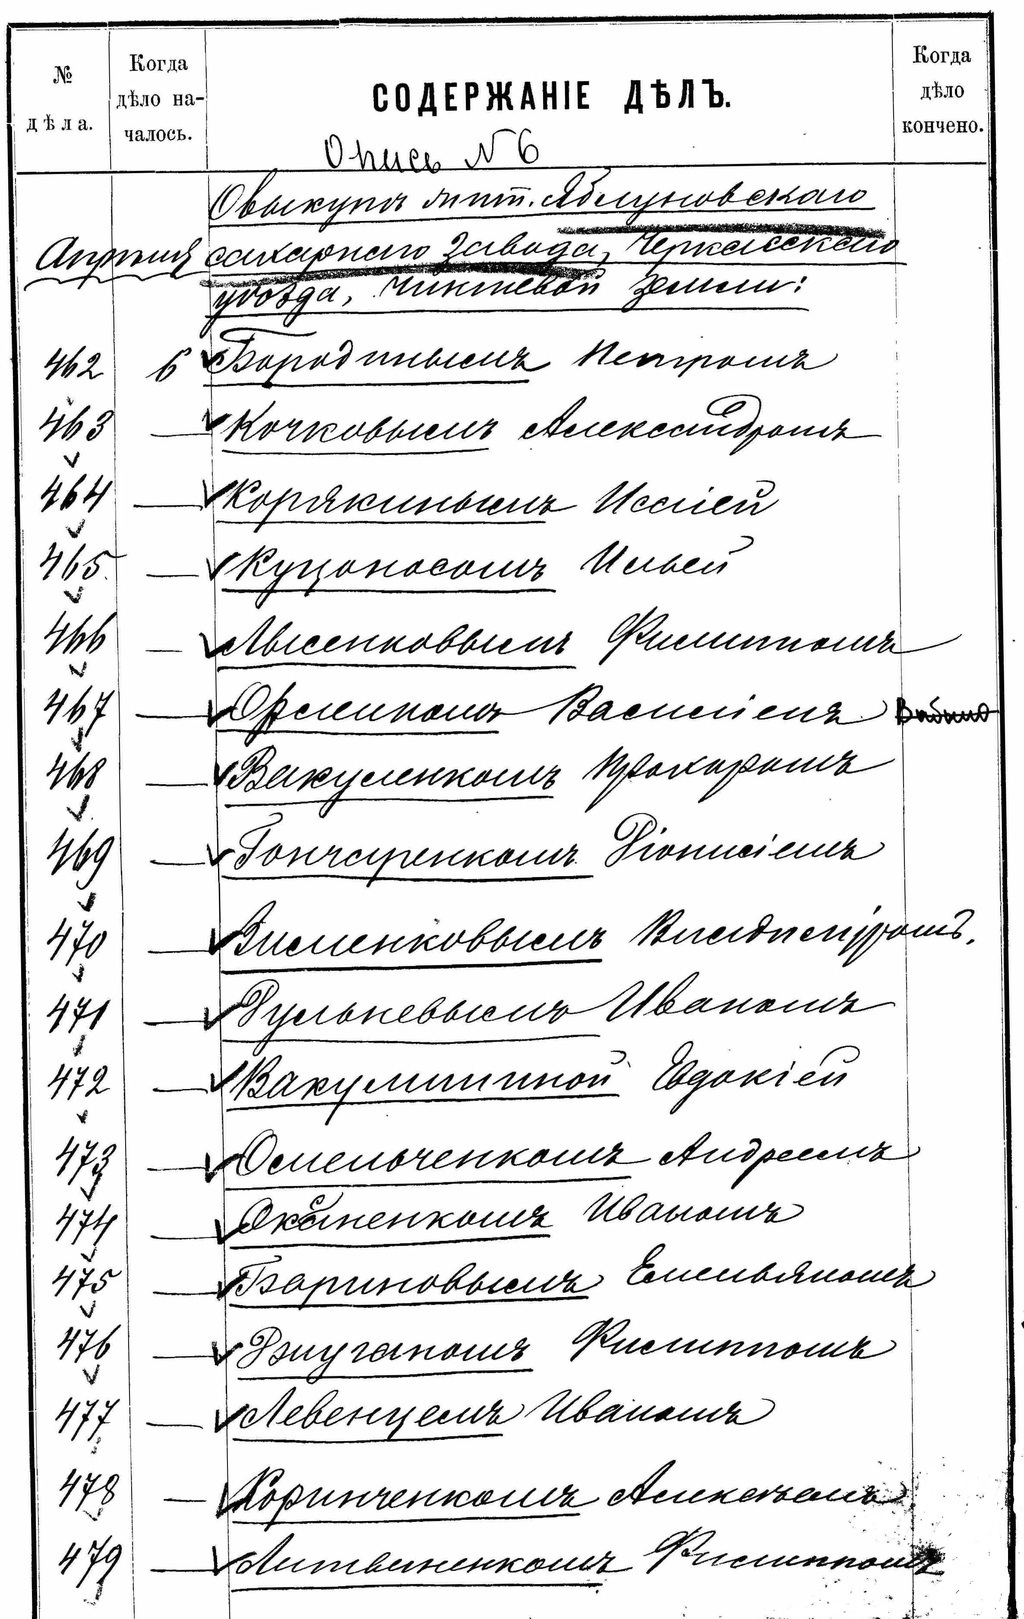 № дѣла.
Когда дѣло на-
чалось.
СОДЕРЖАНІЕ ДѢЛЪ.
Когда дѣло кончено.
Опись N 6
О выкупѣ мѣщ. Яблуновскаго
Апрѣля сахарнаго завода, Черкасскаго
уѣзда, чиншевой земли:
462 6 Бородинымъ Петромъ
463 — Кочковымъ Александромъ
464 — Корякинымъ Иссіей
465 — Куцоносомъ Ильей
466 — Лысенковымъ Филиппомъ
467 — Орликомъ Василіемъ
468 Вакуленкомъ Прохоромъ
469 — Гончаренкомъ Діонисіемъ
470 Зиленковымъ Владиміромъ.
471 — Гулькевымъ Иваномъ
472 — Вакулишиной Евдокіей
473 — Омельченкомъ Андреемъ
474 Иваномъ
475 Бариновымъ Емельяномъ
476 — Филиппомъ
477 — Левенцемъ Иваномъ
478 — Коринченкомъ Алексѣемъ
479 Литвиненкомъ Филиппомъ